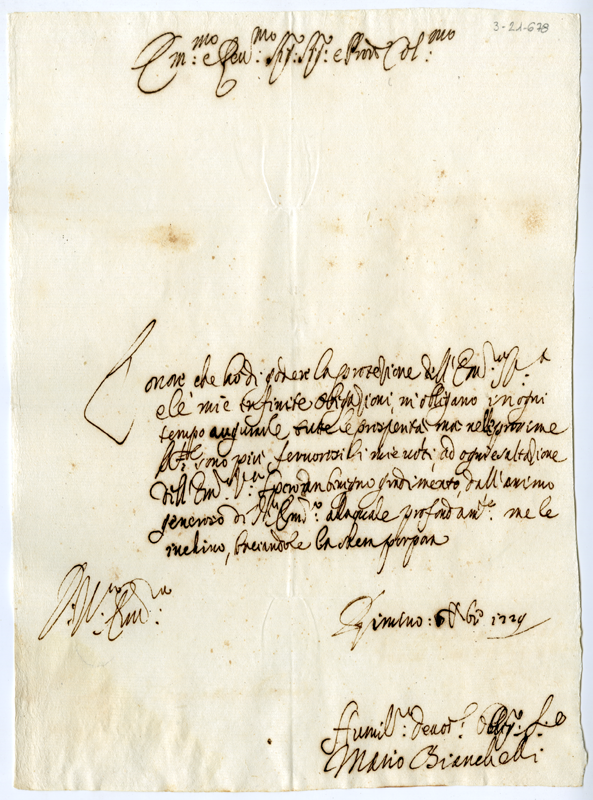 3-21-678
Em.mo e Reu.mo Sig.r Sig.r e Pron Col.mo
L'onore che hò di godere la protezione dell'Em.
e le mie infinite obligazioni, m'obligano in ogni
tempo augurarle tutte le prosperità, ma nelle prossime
sono più feruorosi li miei uoti, ad ogni esaltazione
dell' Em.
Spero dan benigno gradimento, dall'animo
generoso di V.ra Em.a alla quale profondam.e me le
inchino, baciandole la Sacra porpora
Di V.ra Em.a
Rimino: Xbre 1729
Humil.mo Deuot. Oblig.mo S.e
Mario Bianchelli